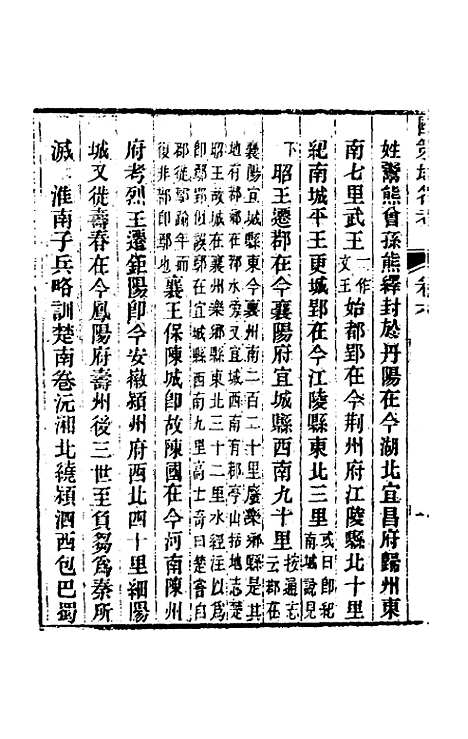 國策地名考 卷六 一
姓鬻熊曾孫熊繹封於丹陽在今湖北宜昌府歸州東
南七里武王一作文王始都郢在今荆州府江陵縣北十里
紀南城平王更城郢在今江陵縣東北三里或曰郢紀南城說見
下昭王遷鄀在今襄陽府宜城縣西南九十里按通志云鄀在
襄陽宜城縣東今襄州南二百二十里廢樂鄉縣是其
地有鄀鄉在鄀水旁又宜城西南有鄀亭山括地志楚
昭王故城在襄州樂鄉縣東北三十二里水經注
即鄢郢似誤鄢在宜城縣西南九里高士奇曰楚嘗
都徙鄀踰年而
復非鄀即郢也襄王保陳城即故陳國在今河南陳州
府考烈王遷鉅陽卽今安徽潁州府西北四十里細陽
城又徙壽春在今鳳陽府壽州後三世至負芻爲秦所
滅 淮南子兵略訓楚南卷沅湘北繞潁泗西包巴蜀